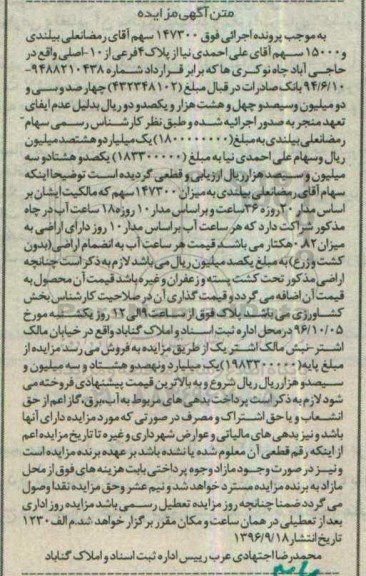 متن آگهی مزایده
به موجب پرونده اجرائی فوق ۱۴۷۳۰۰ سهم آقای رمضانعلی بیلندی
و ۱۵۰۰۰ سهم آقای علی احمدی نیا از پلاک ۴ فرعی از ۱۰- اصلی واقع در
حاجی آباد چاه نوکری ها که برابر قرارداد شماره ۹۴۸۸۲۱۰۴۳۸-
۹۴/۶/۱۰ بانک صادرات در قبال مبلغ (۴۳۲۳۴۸۱۰۲) چهارصد و سی و
دو میلیون و سیصد و چهل و هشت هزار و یکصد و دو ریال بدلیل عدم ایفای
تعهد منجر به صدور اجرائیه شده و طبق نظر کارشناس رسمی سهام
رمضانعلی بیلندی به مبلغ (۱۸۰۰۰۰۰۰۰۰) یک میلیارد و هشتصد میلیون
ریال و سهام علی احمدی نیا به مبلغ (۱۸۳۳۰۰۰۰۰) یکصد و هشتاد و سه
میلیون و سیصد هزار ریال ارزیابی و قطعی گردیده است توضیحا اینکه
سهام آقای رمضانعلی بیلندی به میزان ۱۴۷۳۰۰ سهم که مالکیت ایشان بر
اساس مدار ۲۰ روزه ۳۶ ساعت و براساس مدار ۱۰ روزه ۱۸ ساعت آب در چاه
مذکور شراکت دارد که هر ساعت آب براساس مدار ۱۰ روز دارای اراضی به
میزان ۰.۸۲ هکتار می باشد قیمت هر ساعت آب به انضمام اراضی (بدون
کشت و زرع) به مبلغ یکصد میلیون ریال می باشد لازم به ذکر است چنانچه
اراضی مذکور تحت کشت پسته و زعفران و غیره باشد قیمت آن محصول به
قیمت آن اضافه می گردد و قیمت گذاری آن در صلاحیت کارشناس بخش
کشاورزی می باشد پلاک فوق از ساعت ۹ الی ۱۲ روز یکشنبه مورخ
۹۶/۱۰/۰۵ در محل اداره ثبت اسناد و املاک گناباد واقع در خیابان مالک
اشتر- نبش مالک اشتر یک از طریق مزایده به فروش می رسد مزایده از
مبلغ پایه (۱۹۸۳۳۰۰۰۰۰) یک میلیارد و نهصد و هشتاد و سه میلیون و
سیصد هزار ریال ریال شروع و به بالاترین قیمت پیشنهادی فروخته می
شود لازم به ذکر است پرداخت بدهی های مربوط به آب، برق، گاز اعم از حق
انشعاب و یا حق اشتراک و مصرف در صورتی که مورد مزایده دارای آنها
باشد و نیز بدهی های مالیاتی و عوارض شهرداری و غیره تا تاریخ مزایده اعم
از اینکه رقم قطعی آن معلوم شده یا نشده باشد بر عهده برنده مزایده است
و نیز در صورت وجود مازاد وجوه پرداختی بابت هزینه های فوق از محل
مازاد به برنده مزایده مسترد خواهد شد و نیم عشر و حق مزایده نقدا وصول
می گردد ضمنا چنانچه روز مزایده تعطیل رسمی باشد مزایده روز اداری
بعد از تعطیلی در همان ساعت و مکان مقرر برگزار خواهد شد. م الف ۱۲۳۰
تاریخ انتشار ۱۳۹۶/۹/۱۸
محمدرضا اجتهادی عرب رییس اداره ثبت اسناد و املاک گناباد